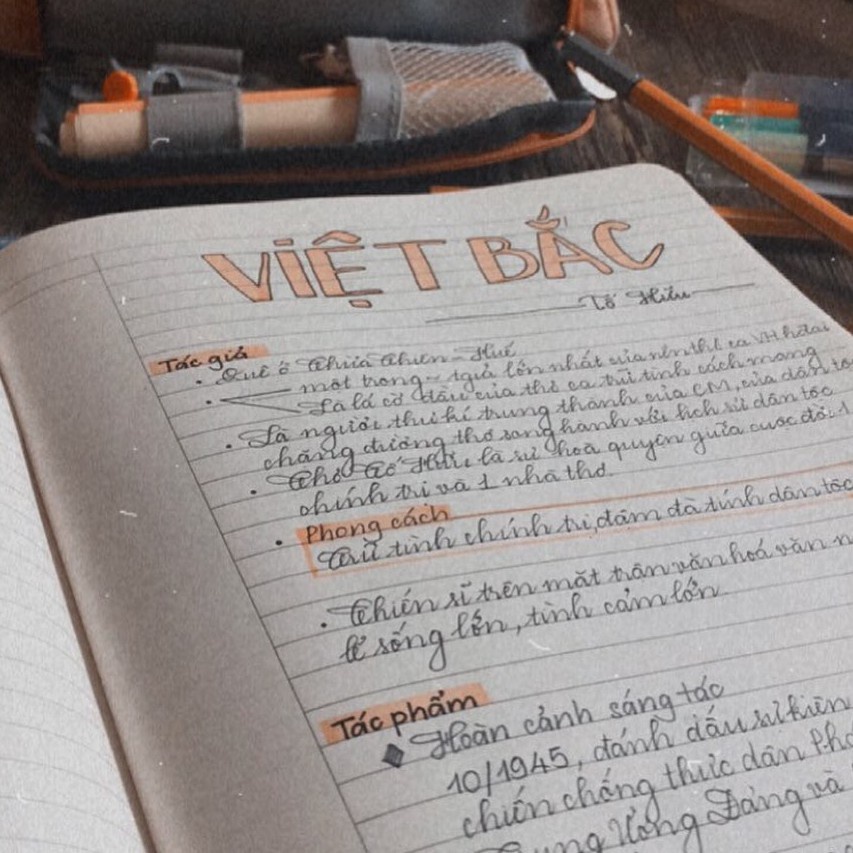 VIỆT BẮC
Tố Hữu
Tác giả
• Quê ở Thừa Thiên - Huế
• một trong ~ tgiả lớn nhất của nền thơ ca VH hđại
Là lá cờ đầu của thơ ca trữ tình cách mạng
• Là người thư kí trung thành của CM, của dân tộ
chặng đường thơ song hành với lịch sử dân tộc
• Thơ Tố Hữu là sự hoà quyện giữa cuộc đời 1
chính trị và 1 nhà thơ.
• Phong cách
Trữ tình chính trị, đậm đà tính dân tộc
• Chiến sĩ trên mặt trận văn hoá văn n
lẽ sống lớn, tình cảm lớn
Tác phẩm
◆ Hoàn cảnh sáng tác
10/1945, đánh dấu sự kiện
chiến chống thực dân Phá
Trung Ương Đảng và